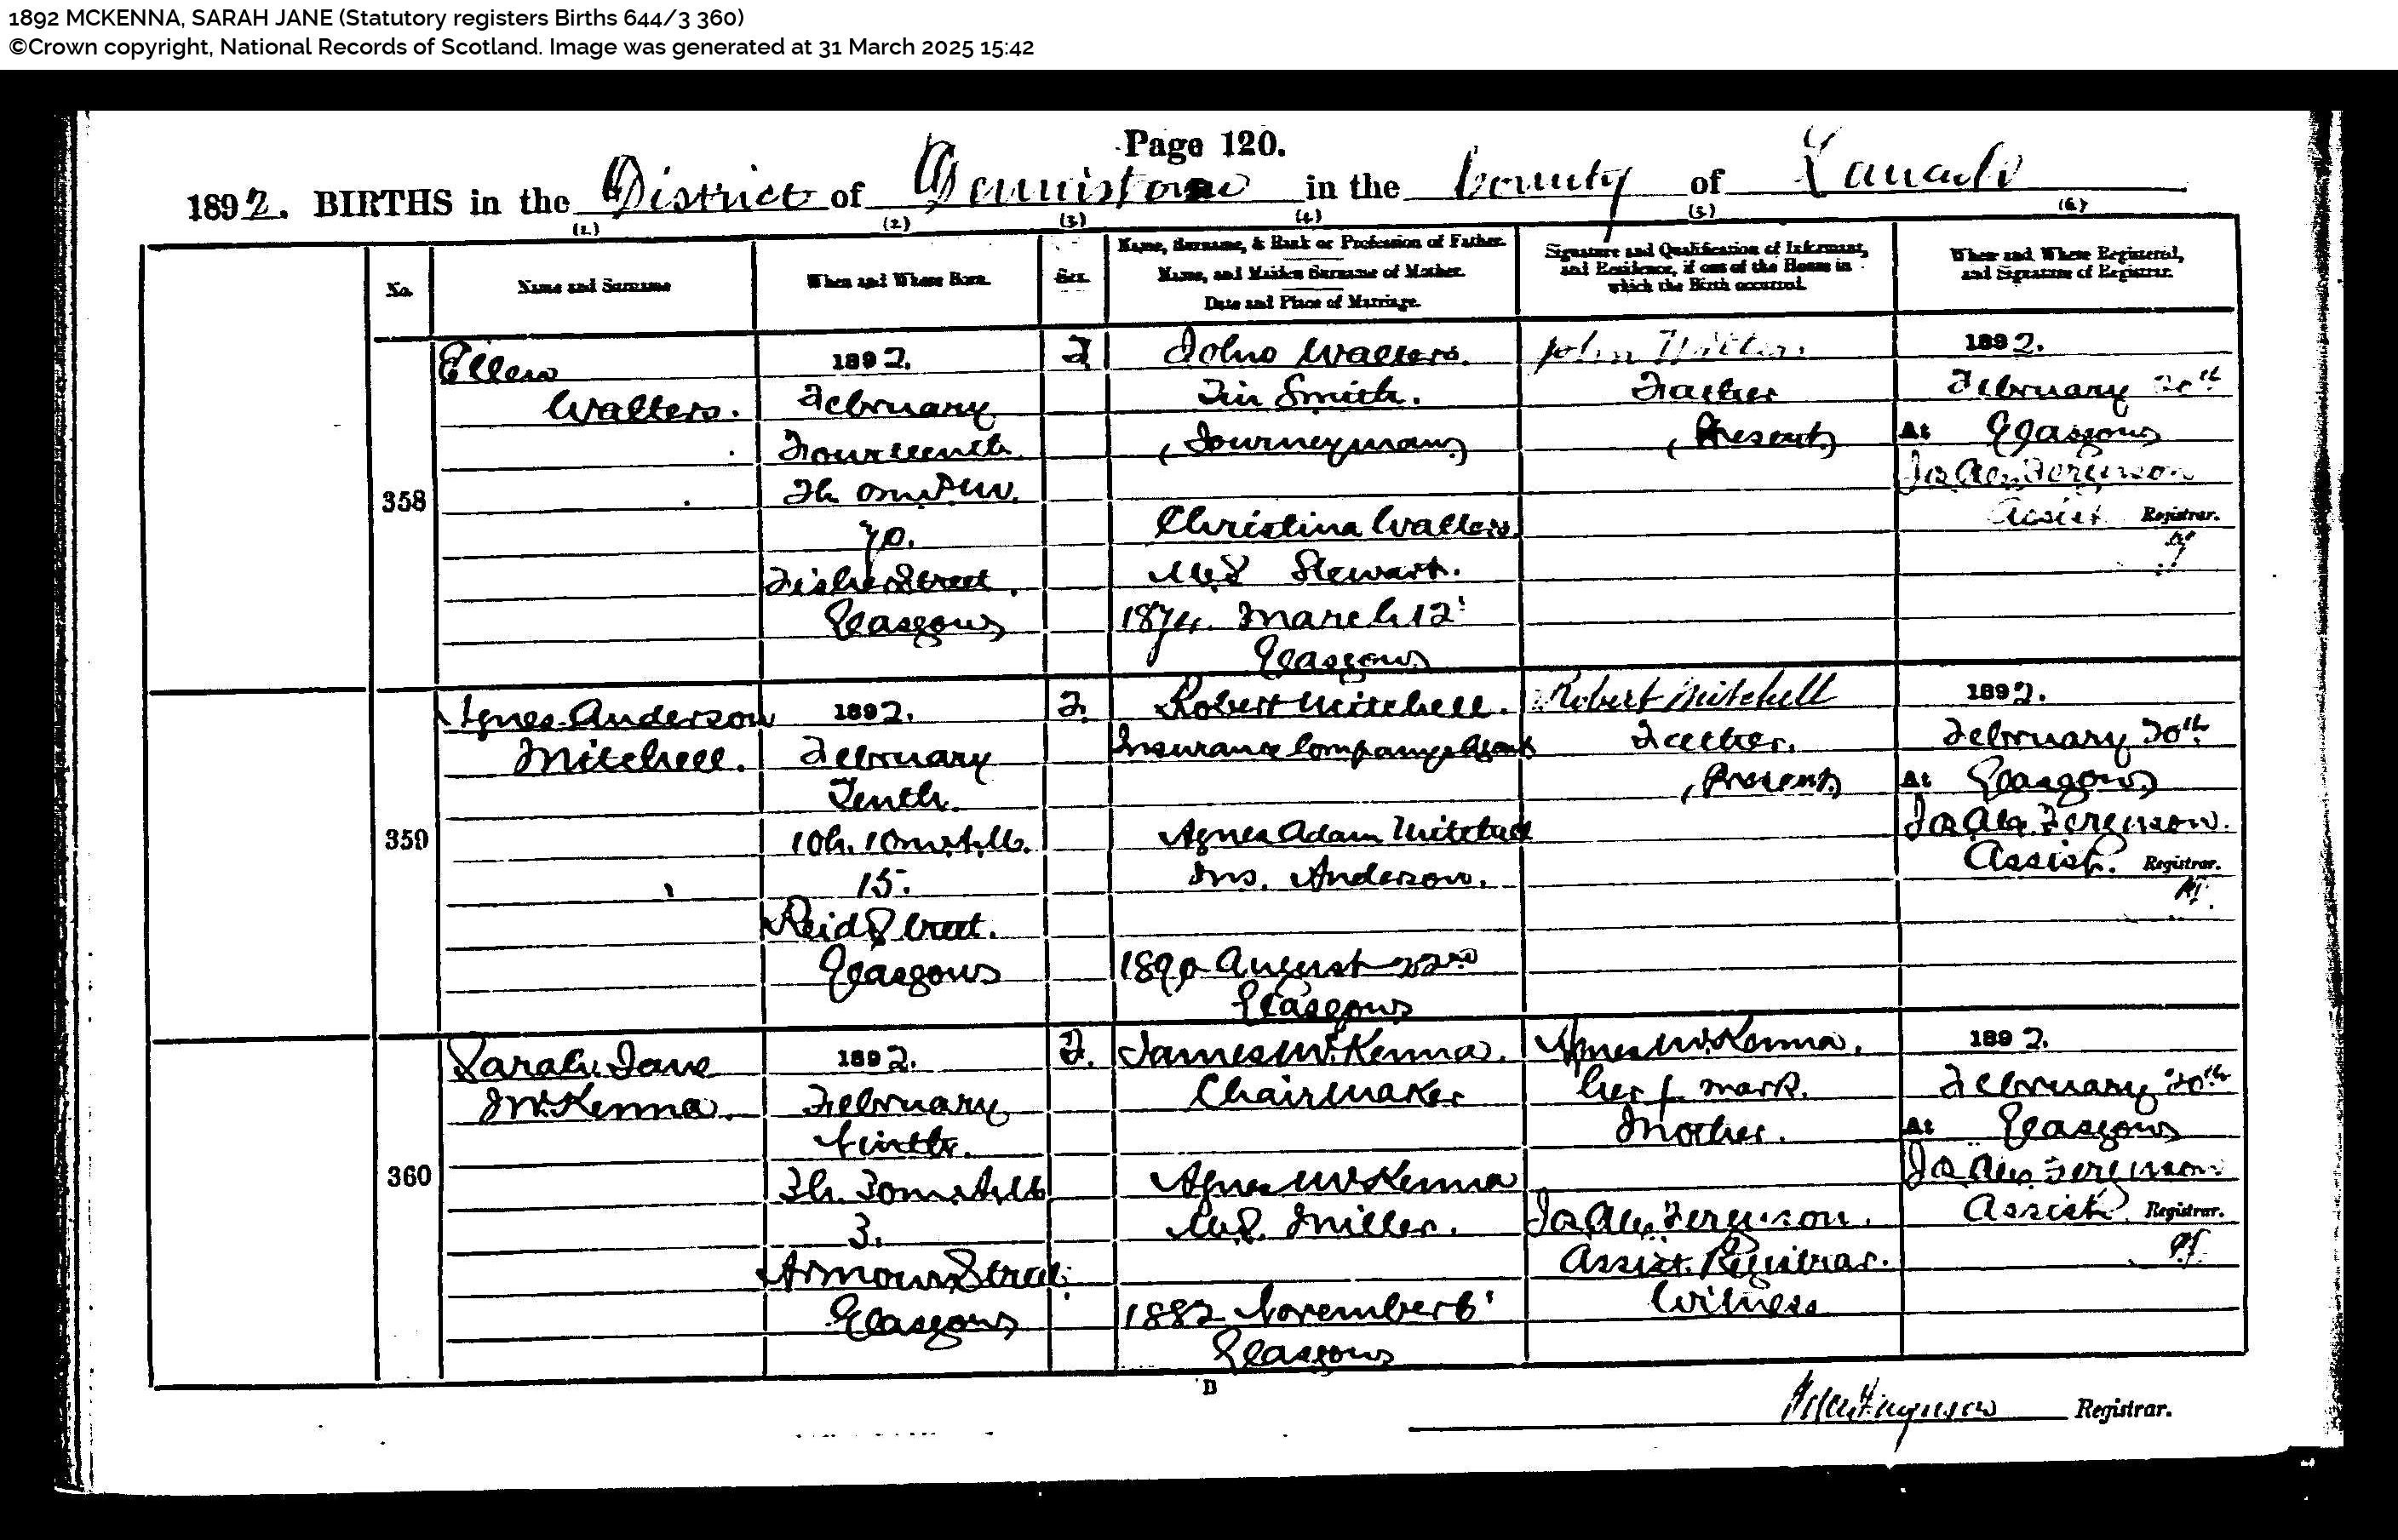 1892 MCKENNA, SARAH JANE (Statutory registers Births 644/3 360)
©Crown copyright, National Records of Scotland. Image was generated at 31 March 2025 15:42
Page 120.
1892. BIRTHS in the District of Dennistoun in the County of Lanark
(1.) (2.) (3.) (4.) (5.) (6.)
No. Name and Surname When and Where Born. Sex.
Name, Surname, & Rank or Profession of Father.
Name, and Maiden Surname of Mother.
Date and Place of Marriage.
Signature and Qualification of Informant,
and Residence, if out of the House in
which the Birth occurred.
When and Where Registered,
and Signature of Registrar.
358
Ellen
Walters.
1892.
February
Fourteenth
2h 0m P.M.
70.
Fisher Street
Glasgow
F.
John Walters.
Tin Smith.
(Journeyman)
Christina Walters
M.S Stewart.
1874. March 12
Glasgow
John Walters.
Father
(Present)
1892.
February 20th
At Glasgow
Jas Alex Ferguson
Assist. Registrar.
359
Agnes Anderson
Mitchell.
1892.
February
Tenth.
10h. 10m A.M.
15.
Reid Street.
Glasgow
F.
Robert Mitchell.
Insurance Company's Agent
Agnes Adam Mitchell
M.S. Anderson.
1890 August 22nd
Glasgow
Robert Mitchell
Father.
(Present)
1892.
February 20th
At Glasgow
Jas Alex. Ferguson.
Assist. Registrar.
360
Sarah Jane
McKenna.
1892.
February
Ninth.
3h. 30m A.M.
3.
Armour Street
Glasgow
F.
James McKenna.
Chairmaker
Agnes McKenna
M.S. Miller.
1882 November 6
Glasgow
Agnes McKenna.
her mark.
Mother.
Jas Alex. Ferguson.
Assist. Registrar.
Witness
1892.
February 20th
At Glasgow
Jas Alex. Ferguson
Assist. Registrar.
D
Ferguson Registrar.